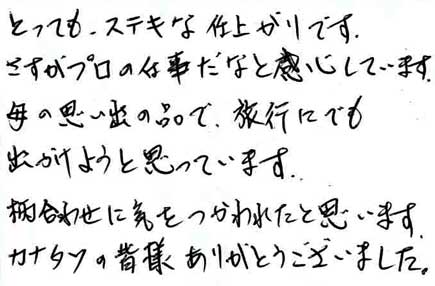 とっても、ステキな仕上がりです。
さすがプロの仕事だなと感心しています。
母の思い出の品で、旅行にでも
出かけようと思っています。
柄合わせに気をつかわれたと思います。
カナタツの皆様ありがとうございました。